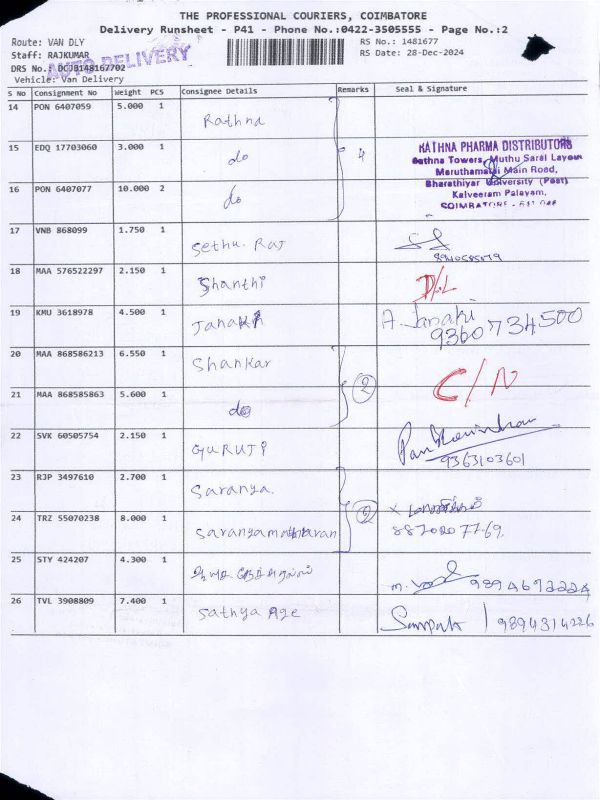 THE PROFESSIONAL COURIERS, COIMBATORE
Delivery Runsheet - P41 - Phone No.:0422-3505555 - Page No.:2
Route: VAN DLY RS No.: 1481677
Staff: RAJKUMAR RS Date: 28-Dec-2024
AUTO DELIVERY
DRS No.: DCJB148167702
Vehicle: Van Delivery
S No Consignment No Weight PCS Consignee Details Remarks Seal & Signature
14 PON 6407059 5.000 1 Rathna
15 EDQ 17703060 3.000 1 do 4
RATHNA PHARMA DISTRIBUTORS
Rathna Towers, Muthu Saral Layout
Maruthamalai Main Road,
16 PON 6407077 10.000 2 do
Bharathiyar University (Post)
Kalveeram Palayam,
COIMBATORE - 641 046
17 VNB 868099 1.750 1 Sethu. Raj
18 MAA 576522297 2.150 1 Shanthi D/L
19 KMU 3618978 4.500 1 Janaki A. Janaki
9360734500
20 MAA 868586213 6.550 1 Shankar
21 MAA 868585863 5.600 1 do 2 C/N
22 SVK 60505754 2.150 1 GURUJI
9363103601
23 RJP 3497610 2.700 1 Saranya.
24 TRZ 55070238 8.000 1 8870207769
25 STY 424207 4.300 1 9894692224
26 TVL 3908809 7.400 1 Sathya Age Sampath 9894314226